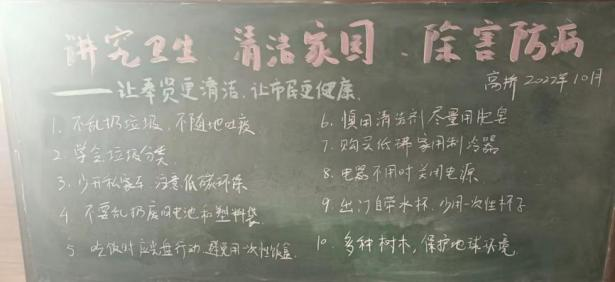 讲究卫生、清洁家园、除害防病
——让奉贤更清洁、让市民更健康
高桥 2022年10月
1、不乱扔垃圾、不随地吐痰
2、学会垃圾分类
3、少开私家车、注意低碳环保
4、不要乱扔废旧电池和塑料袋
5、吃饭时应光盘行动、避免用一次性饭盒
6、慎用清洁剂尽量用肥皂
7、购买低沸家用制冷器
8、电器不用时关闭电源
9、出门自带水杯、少用一次性杯子
10、多种树木，保护地球环境